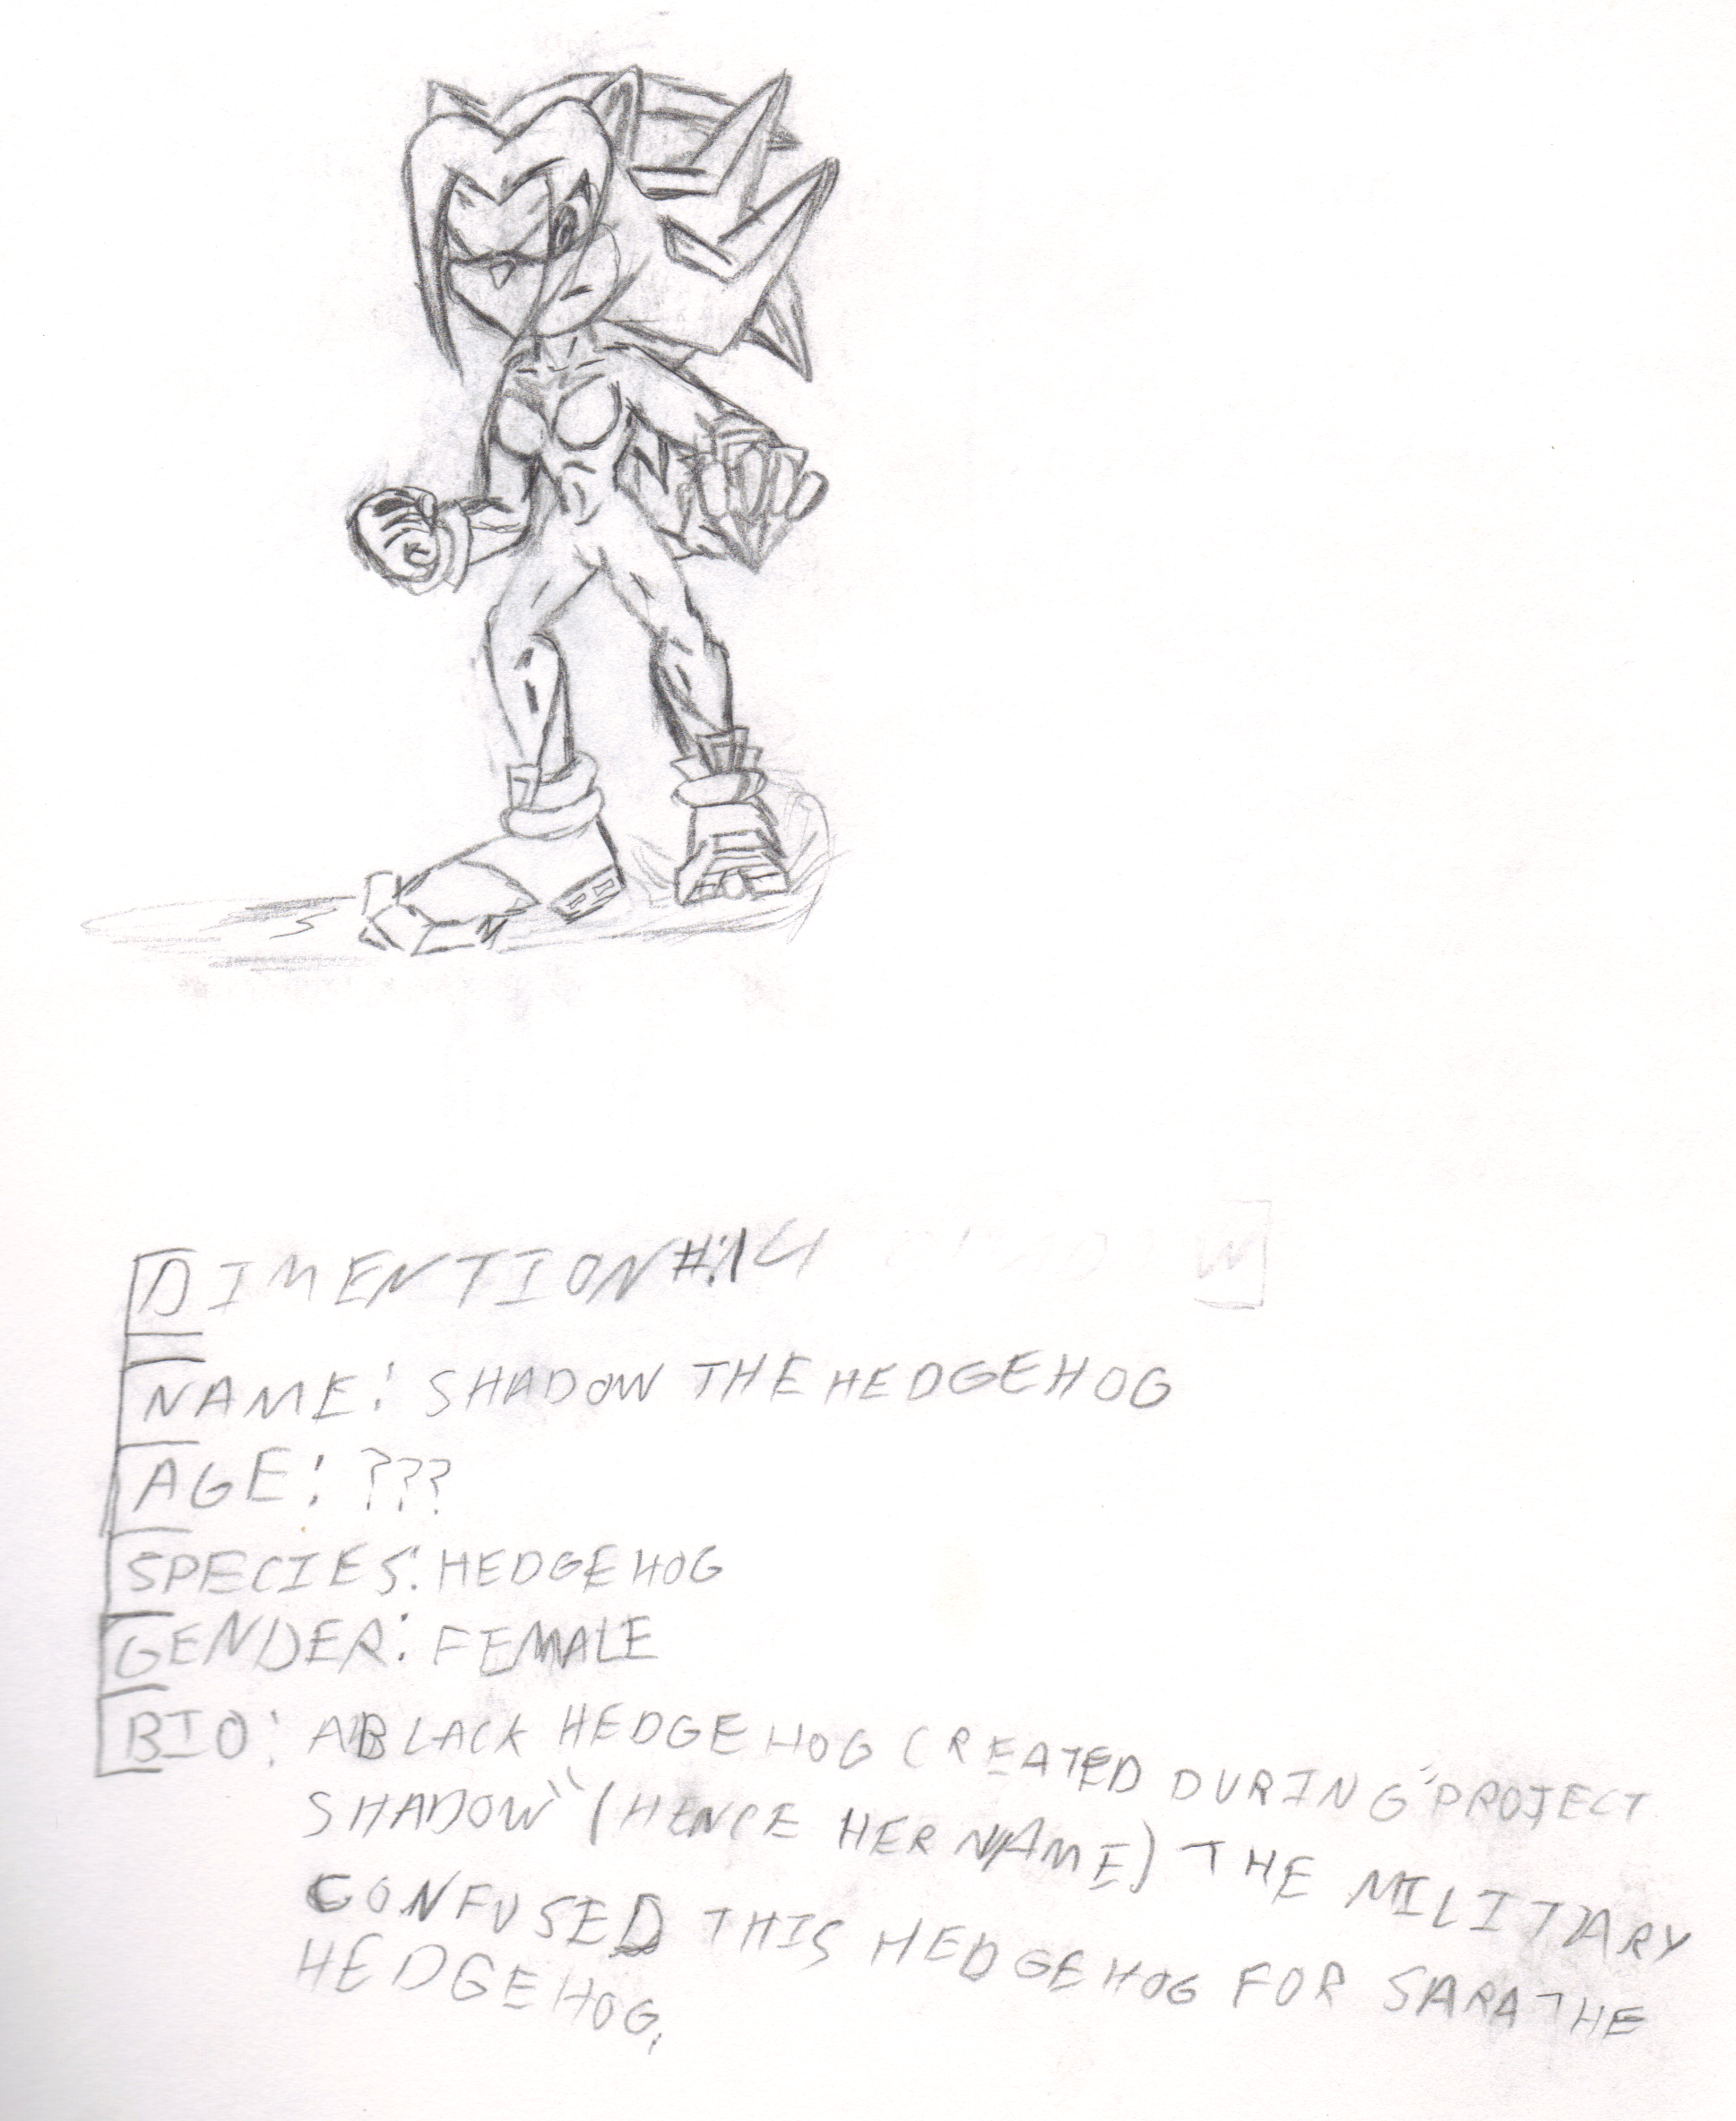 DIMENTION #:14
NAME: SHADOW THE HEDGEHOG
AGE: ???
SPECIES: HEDGEHOG
GENDER: FEMALE
BIO: A BLACK HEDGEHOG CREATED DURING "PROJECT
SHADOW" (HENCE HER NAME) THE MILITARY
CONFUSED THIS HEDGEHOG FOR SARA THE
HEDGEHOG.